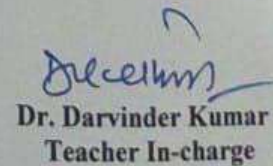 Dr. Darvinder Kumar
Teacher In-charge